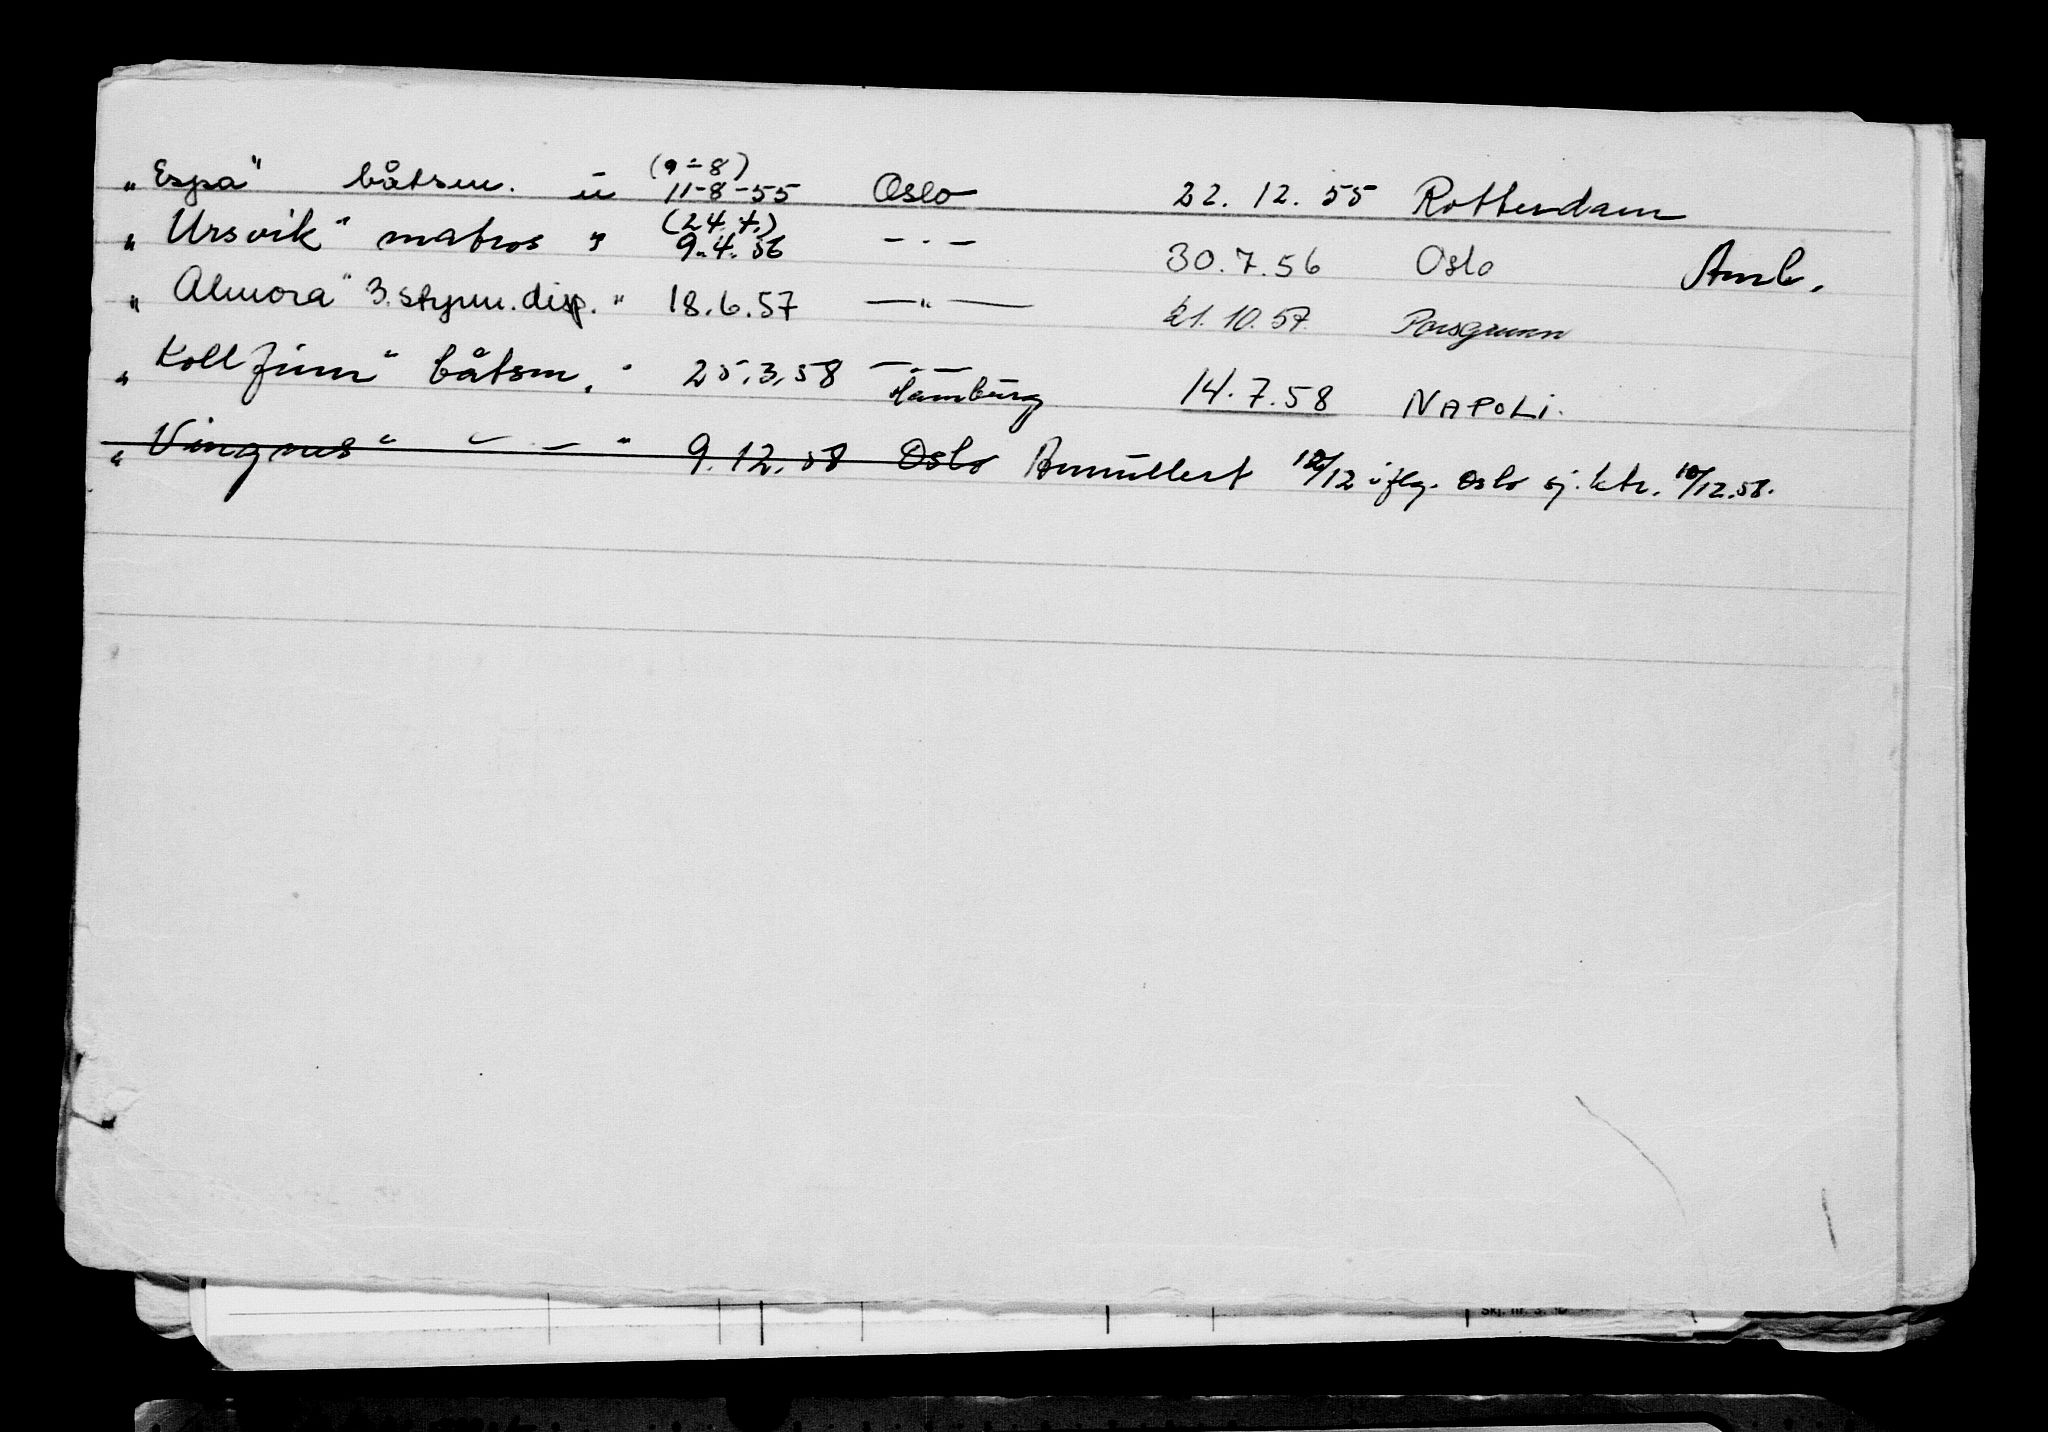 (9-8)
„Espa" båtsm. u 11-8-55 Oslo 22.12.55 Rotterdam
(24.4.)
„Ursvik" matros " 9.4.56 -.- 30.7.56 Oslo Amb.
„Almora" 3.styrm.disp. " 18.6.57 —"— 21.10.57. Porsgrunn
„Kollfinn" båtsm. " 25.3.58 -.- Hamburg 14.7.58 NAPOLI.
„Vingnes" -.- " 9.12.58 Oslo Annullert 10/12 iflg. Oslo sj.ktr. 10/12.58.
Skj. nr. 3.